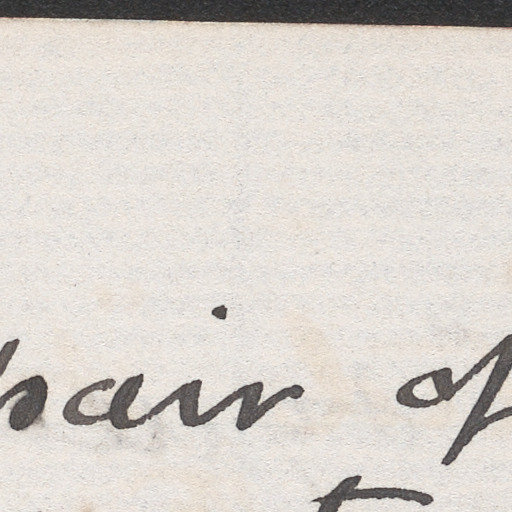 pair of